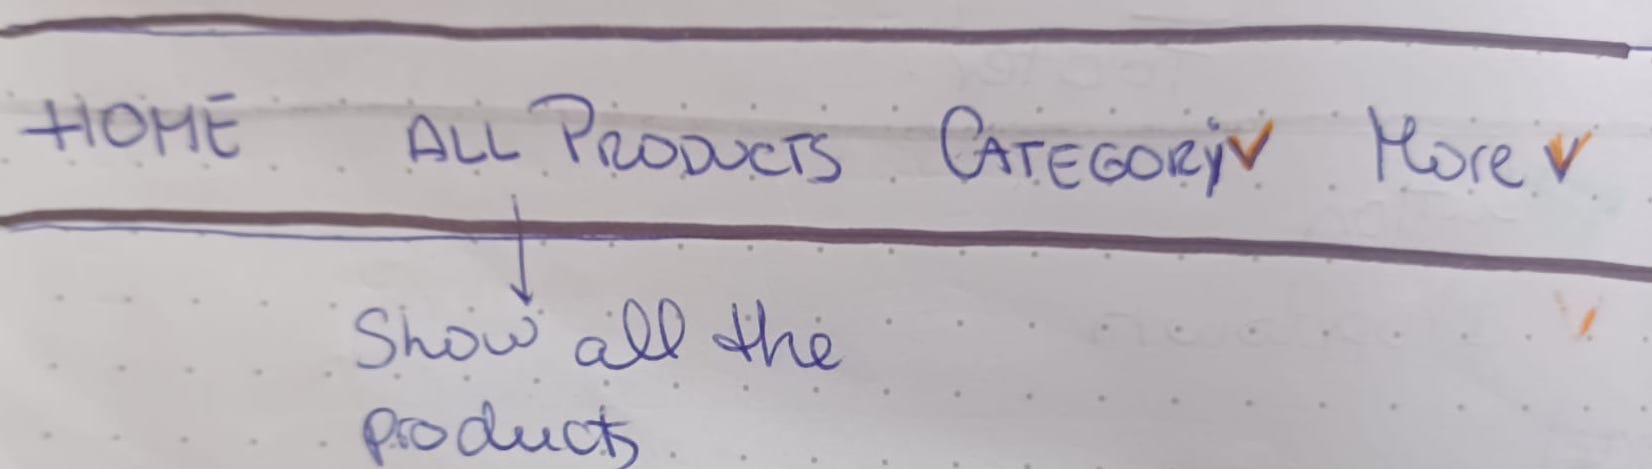 HOME ALL PRODUCTS CATEGORY More
Show all the
products